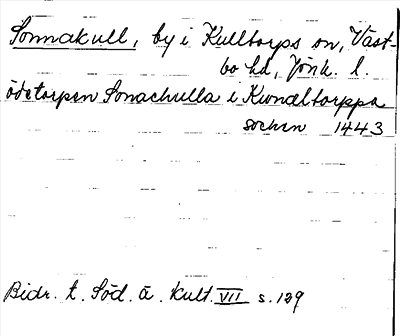 Sonnakull, by i Kulltorps sn, Väst-
bo hd, Jönk. l.
ödetorpen Sonachulla i Kwndltorppa
sochen 1443
Bidr. t. Söd. ä. kult. VII s. 129